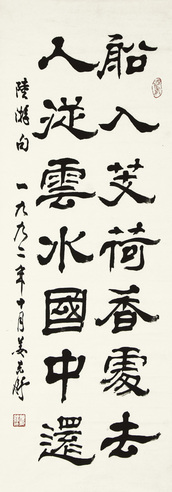 船入芰荷香處去
人從雲水國中還
陸游句 一九九二年十月姜東舒